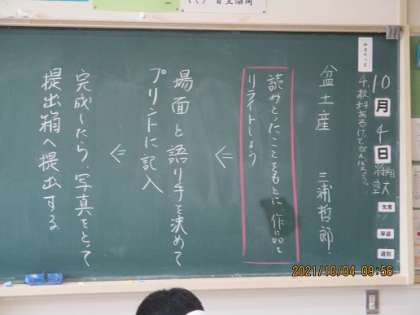 10月4日
盆土産 三浦哲郎
読みとったことをもとに作品を
リライトしよう
⇓
場面と語り手を決めて
プリントに記入
⇓
完成したら、写真をとって
提出箱へ提出する
2021/10/04 09:56